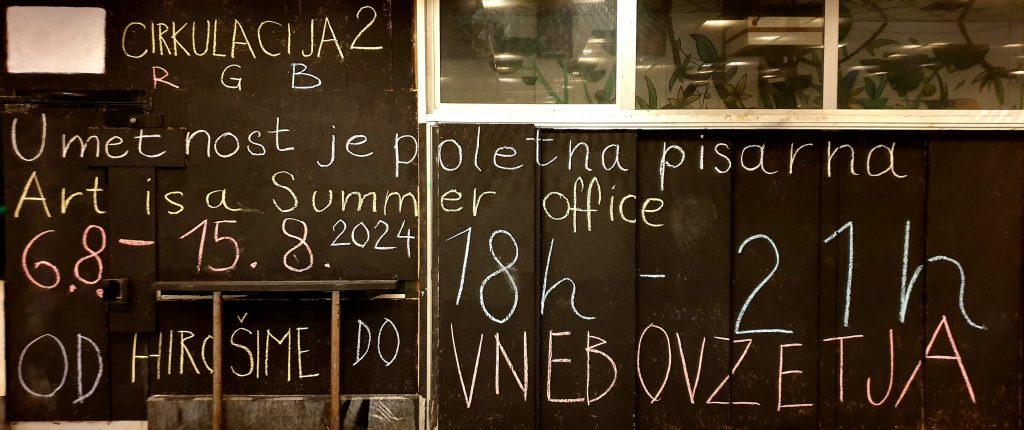 CIRKULACIJA 2
R G B
Umetnost je poletna pisarna
Art is a Summer office
6.8.- 15.8.2024 18h - 21h
OD HIROŠIME DO VNEBOVZETJA